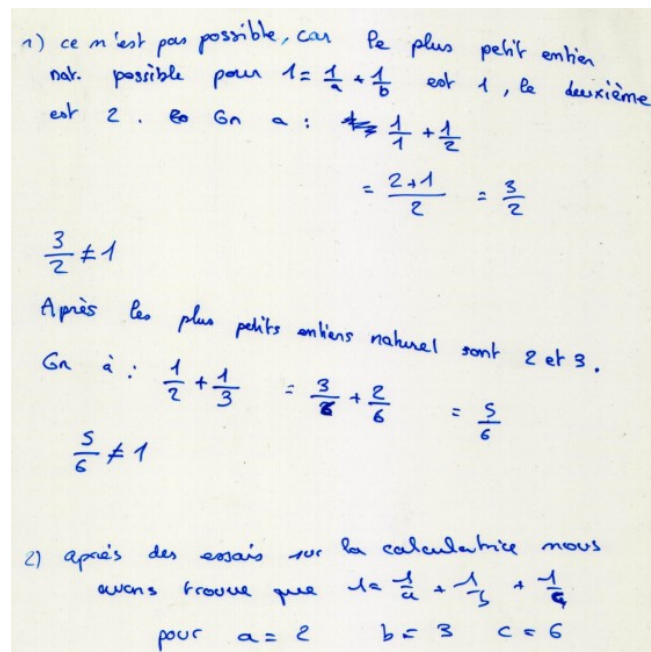 1) ce n'est pas possible, car le plus petit entier
nat. possible pour 1 = 1/a + 1/b est 1, le deuxième
est 2. On a : 1/1 + 1/2
= 2+1/2 = 3/2
3/2 ≠ 1
Après les plus petits entiers naturel sont 2 et 3.
On à : 1/2 + 1/3 = 3/6 + 2/6 = 5/6
5/6 ≠ 1
2) après des essais sur la calculatrice nous
avons trouve que 1 = 1/a + 1/b + 1/c
pour a = 2 b = 3 c = 6